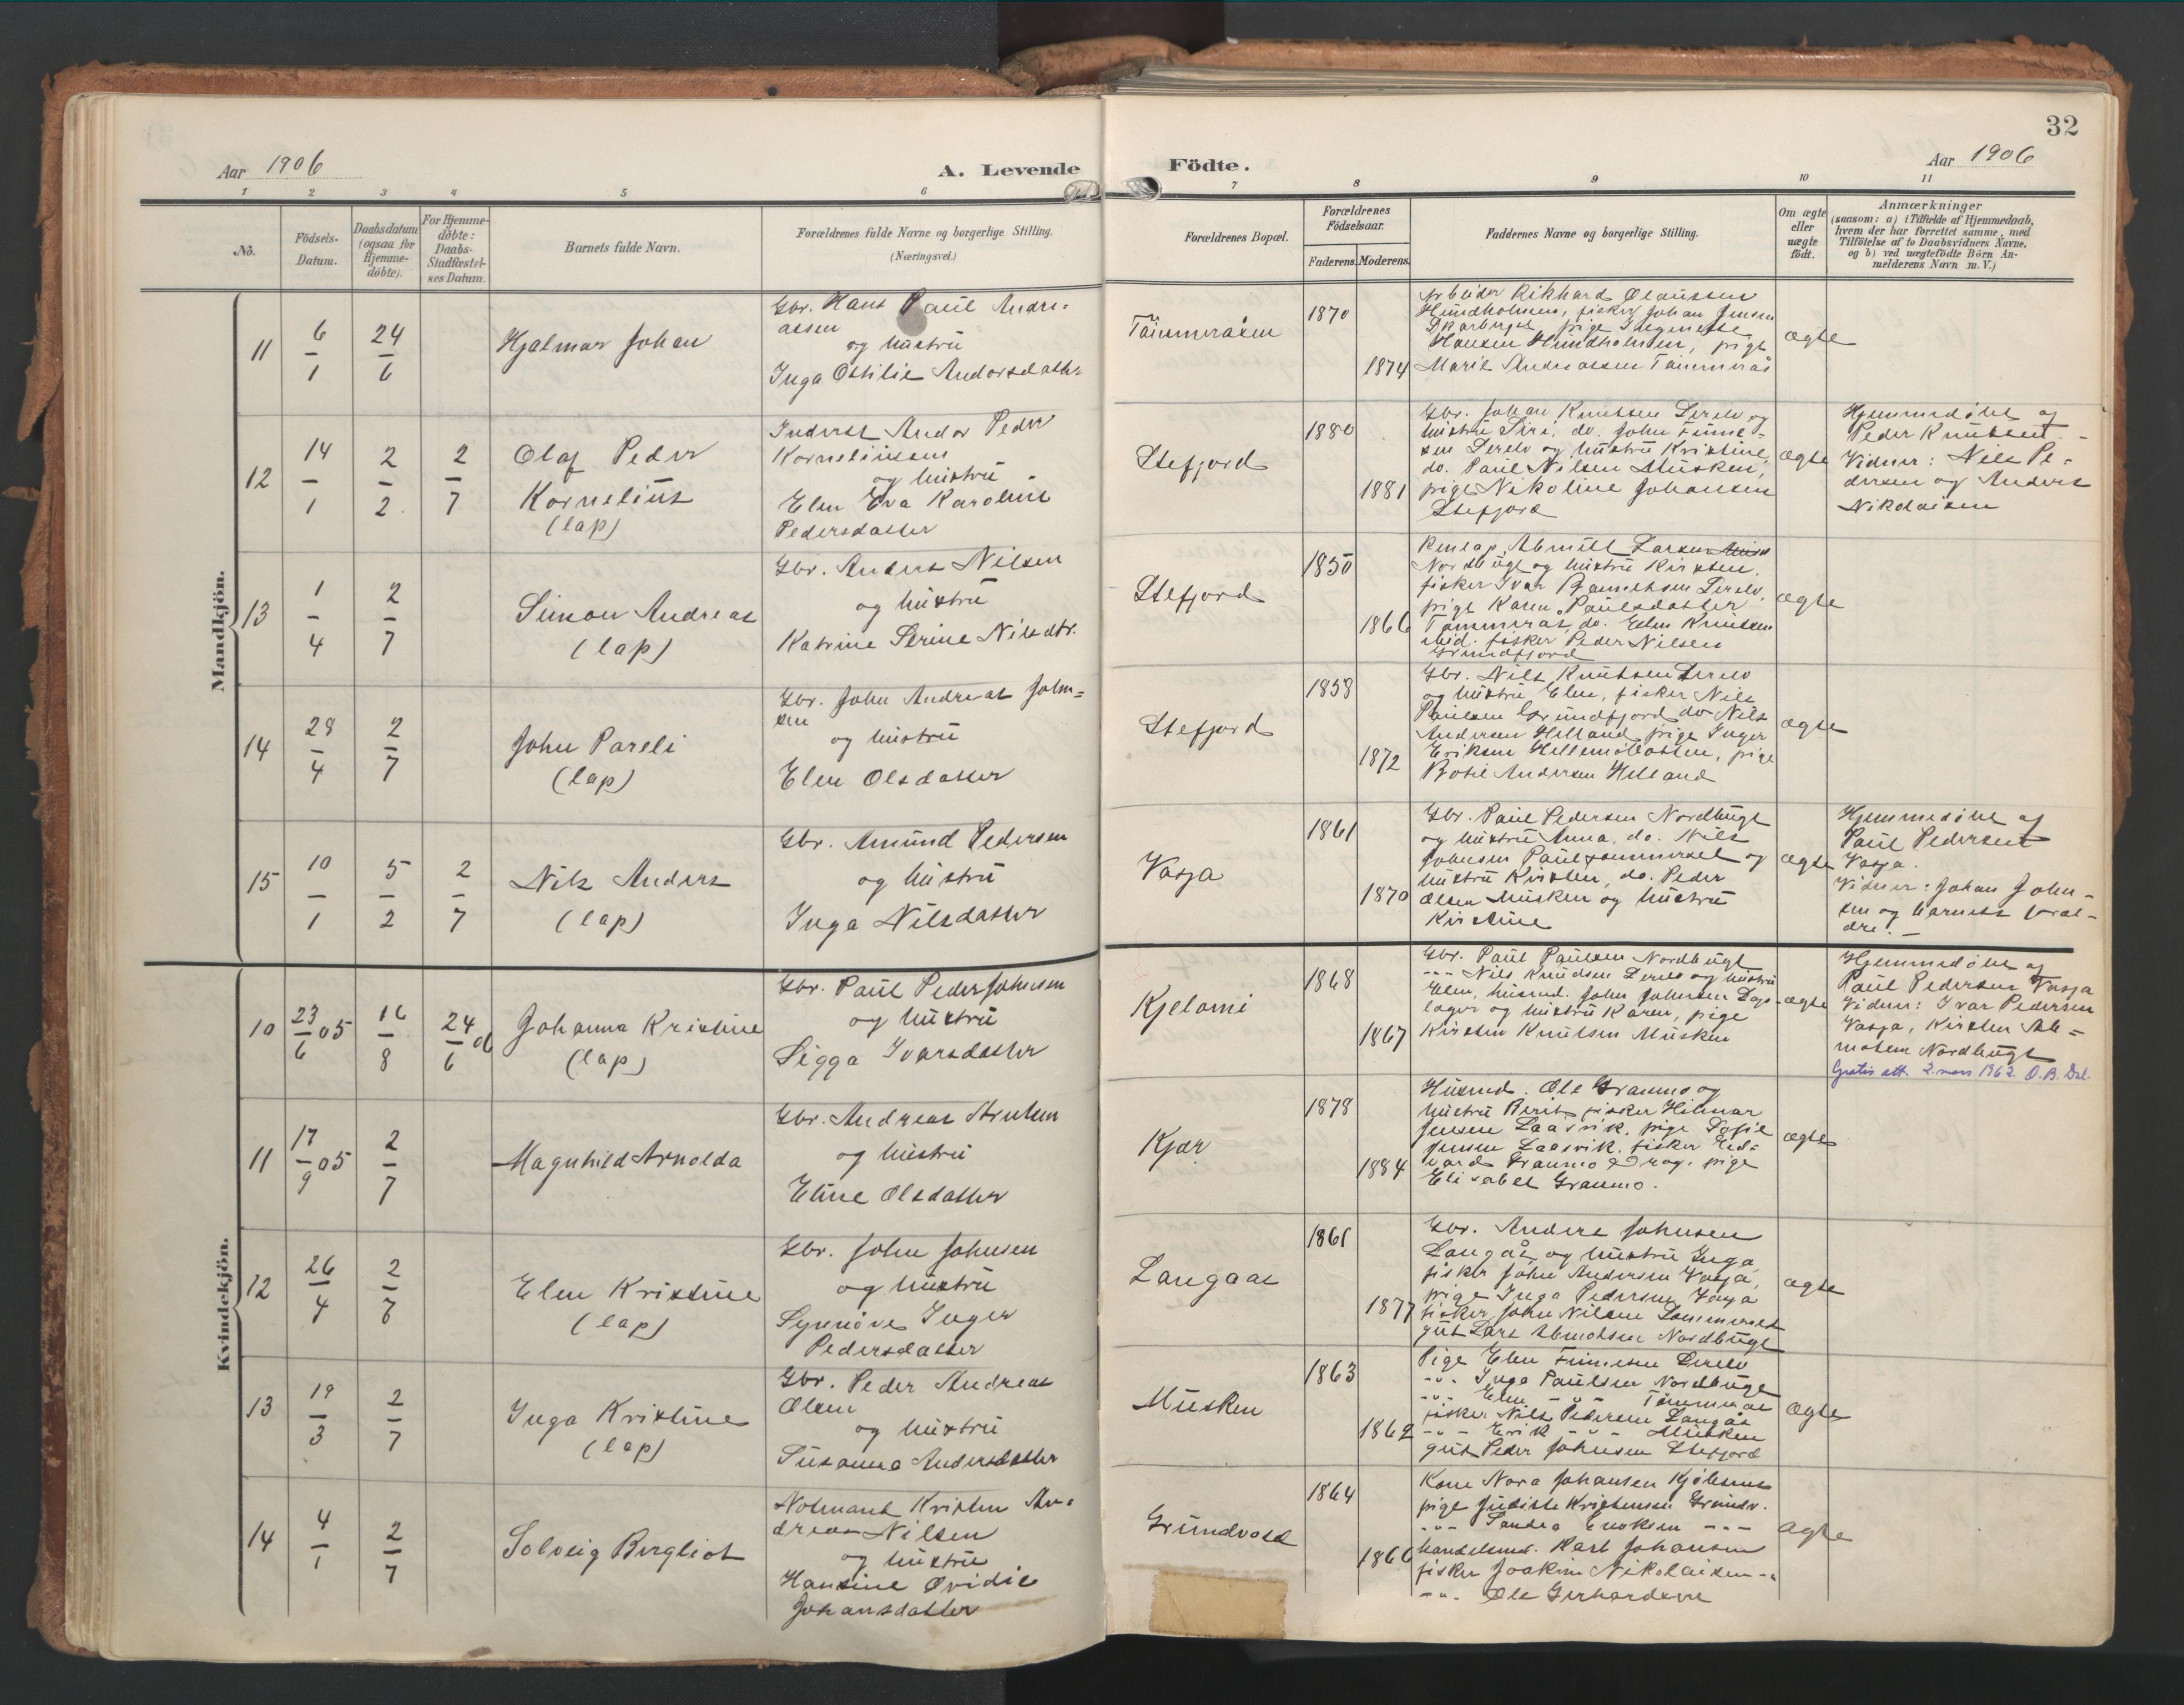 32
Aar 1906
A. Levende
Födte.
Aar 1906
1 2 3 4 5 6 7 8 9 10 11
No.
Födsels-
Datum.
Daabsdatum
(ogsaa for
Hjemme-
döbte).
For Hjemme-
döbte:
Daabs-
Stadfæstel-
ses Datum.
Barnets fulde Navn.
Forældrenes fulde Navne og borgerlige Stilling.
(Næringsvei.)
Forældrenes Bopæl.
Forældrenes
Födselsaar.
Faderens. Moderens.
Faddernes Navne og borgerlige Stilling.
Om ægte
eller
uægte
födt.
Anmærkninger
(saasom: a) i Tilfælde af Hjemmedaab,
hvem der har forrettet samme, med
Tilföielse af to Daabsvidners Navne,
og b) ved uægtefödte Börn An-
melderens Navn m. V.)
Mandkjön.
11
6/1
24/6
Hjalmar Johan
Gbr. Hans Paul Andre-
assen
og hustru
Inga Ottilie Andorsdatter
1870
1874
Arbeider Rikhard Olaussen
Hundholmen, fisker Johan Jensen
Skarberget, pige
Hansen Hundholmen, pige
Marie Andreassen
ægte
12
14/1
2/2
2/7
Olaf Peder
Kornelius
(lap)
Inderst Andor Peder
Korneliussen
og hustru
Elen Eva Karoline
Pedersdatter
Stefjord
1880
1881
Gbr. Johan Knutsen Derelv og
hustru Siri, do. John
sen Derelv og hustru Kristine,
do. Paul Nilsen Musken,
pige Nikoline Johansen
Stefjord
ægte
Hjemmedöbt af
Peder Knutsen. -
Vidner: Nils Pe-
dersen og Anders
Nikolaisen
13
1/4
2/7
Simon Andreas
(lap)
Gbr. Anders Nilsen
og hustru
Katrine Serine Nilsdtr.
Stefjord
1850
1866
Larsen
Nordbugt og hustru Kirsten,
fisker Ivar Derelv,
pige Karen Paulsdatter
Tømmerås, do. Elen Knutsen
ibid. fisker Peder Nilsen
Grundfjord
ægte
14
28/4
2/7
John Pareli
(lap)
Gbr. John Andreas John-
sen
og hustru
Elen Olsdatter
Stefjord
1858
1872
Gbr. Nils Knutsen Derelv
og hustru Elen, fisker Nils
Paulsen Grundfjord, do Nils
Andersen Helland, pige Inger
Eriksen Hellemobotten, pige
Botil Andersen Helland
ægte
15
10/1
5/2
2/7
Nils Anders
(lap)
Gbr. Amund Pedersen
og hustru
Inga Nilsdatter
Vasja
1861
1870
Gbr. Paul Pedersen Nordbugt
og hustru Anna, do. Nils
Johnsen Paulsommerset og
hustru Kirsten, do. Peder
Olsen Musken og hustru
Kirstine
ægte
Hjemmedöbt af
Paul Pedersen
Vasja.
Vidner: Johan John-
sen og barnets foræl-
dre. -
Kvindekjön.
10
23/6 05
16/8
24/6 06
Johanna Kristine
(lap)
Gbr. Paul Peder Johnsen
og hustru
Sigga Ivarsdatter
Kjelomi
1868
1867
Gbr. Paul Paulsen Nordbugt
-"- Nils Knudsen Derelv og hustru
Elen, husmd. John Johnsen
og hustru Karen, pige
Kirsten Knutsen Musken
ægte
Hjemmedöbt af
Paul Pedersen Vasja
Vidner: Ivar Pedersen
Vasja, Kirsten Ab-
motsen Nordbugt
Gratis att. 2. mars 1962. O.B. Dal.
11
17/9 05
2/7
Magnhild Arnolda
Gbr. Andreas Arntsen
og hustru
Eline Olsdatter
Kjær
1878
1884
Husmd. Ole Graumo og
hustru Berit, fisker Hilmar
Jensen Laasvik, pige Sofie
Jensen Laasvik, fisker Ed-
vard Graumo Drag, pige
Elisabet Graumo.
ægte
12
26/4
2/7
Elen Kristine
(lap)
Gbr. John Johnsen
og hustru
Synnöve Inger
Pedersdatter
Langaas
1861
1877
Gbr. Anders Johnsen
Langås og hustru Inga,
fisker John Andersen Vasja,
pige Inga Pedersen Vasja
fisker John Nilsen Sommerset
gut Lars Abmotsen Nordbugt
ægte
13
19/3
2/7
Inga Kristine
(lap)
Gbr. Peder Andreas
Olsen
og hustru
Susanna Andersdatter
Musken
1863
1862
Pige Elen Derelv
-"- Inga Paulsen Nordbugt
-"- Elen -"- Tömmeraas
fisker Nils Pedersen Langås
-"- Erik -"- Musken
gut Peder Johnsen Stefjord
ægte
14
4/1
2/7
Solveig Bergliot
Notmand Kristen An-
dreas Nilsen
og hustru
Hansine Ovidie
Johansdatter
Grundvold
1864
1866
Kone Nora Johansen Kjölsnes
pige Judithe Kristensen Grundv.
-"- Sandra Enoksen -"-
handelsmd. Karl Johansen
fisker Joakim Nikolaisen -"-
-"- Ole Gerhardsen
ægte